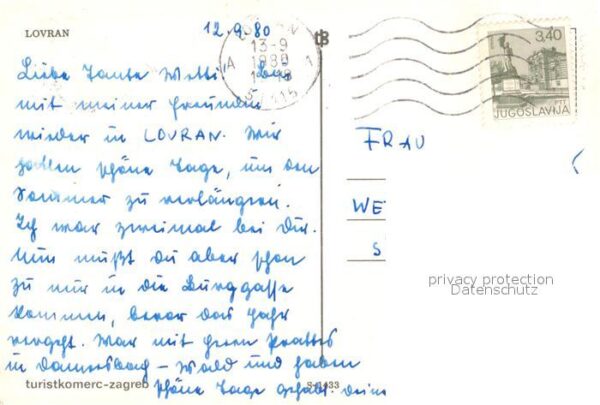 LOVRAN
12.9.80
13-9
1980
3,40
JUGOSLAVIJA
Liebe Tante Wetti! Bin
mit meiner Freundin
wieder in LOVRAN. Wir
hatten schöne Tage, um den
Sommer zu verlängern.
Ich war zweimal bei Dir.
Nun mußt du aber schon
zu mir in die Burggasse
kommen, bevor das Jahr
vergeht. War mit Herrn
in – Wald und haben
schöne Tage gehabt. Deine
FRAU
WE
S
privacy protection
Datenschutz
turistkomerc-zagreb